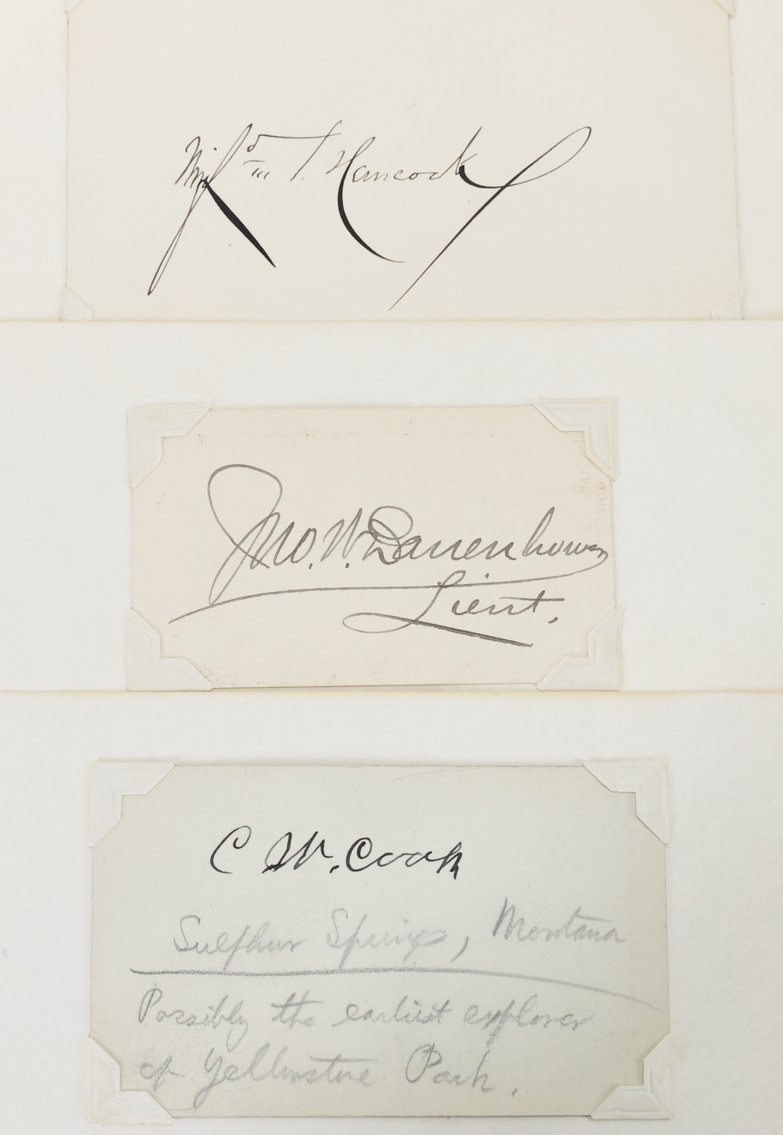 Hancock
Jno. W. Danenhower
Lieut.
C W. Cook
Sulphur Springs, Montana
Possibly the earliest explorer
of Yellowstone Park.